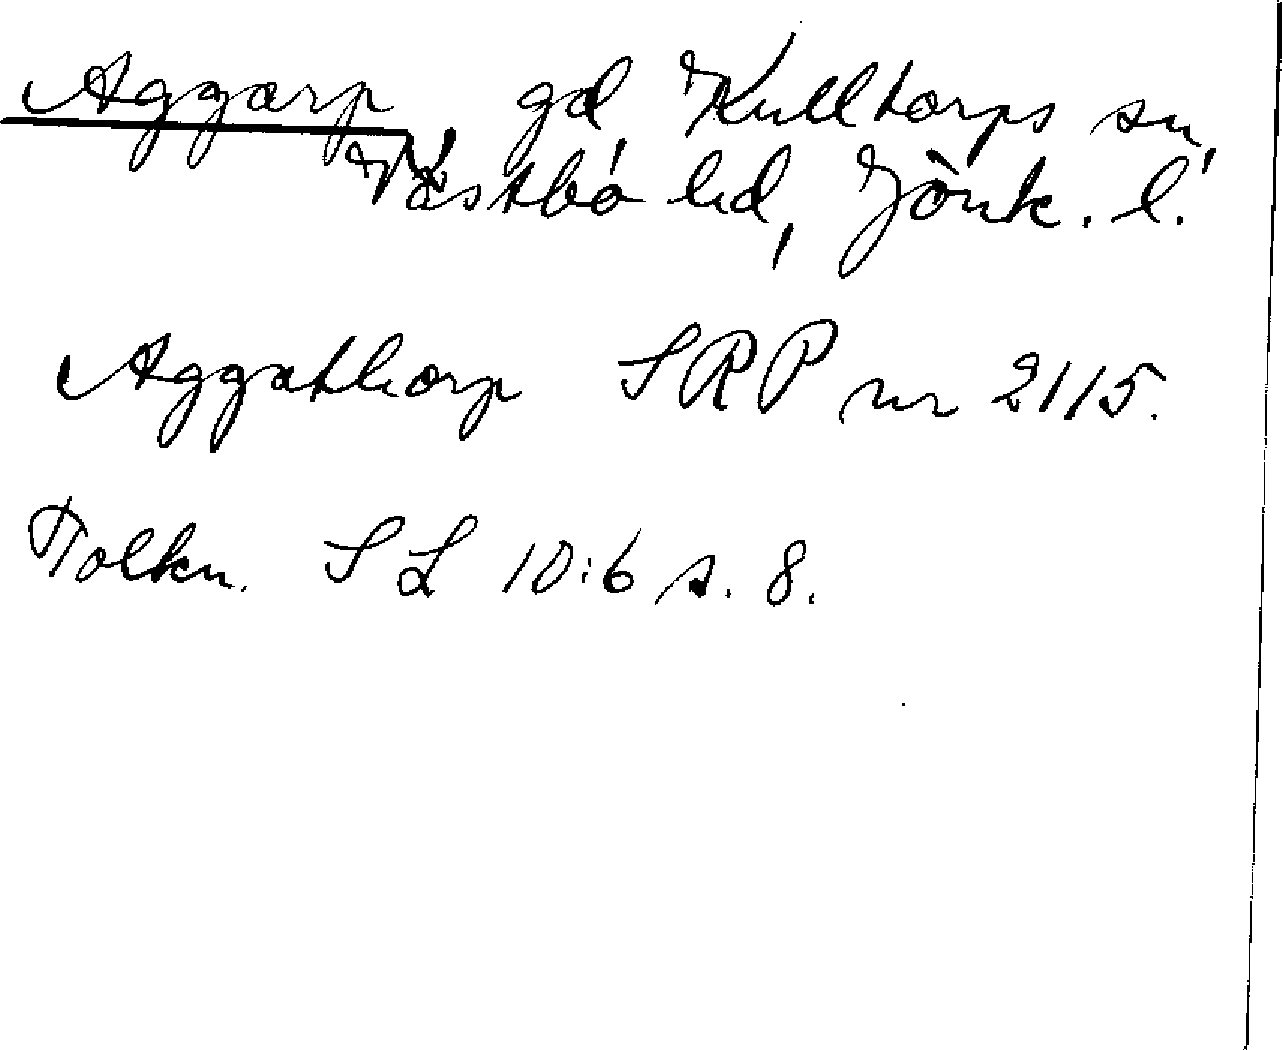 Aggarp, gd, Kulltorps sn,
Västbo hd, Jönk. l.
Aggathorp SRP nr 2115.
Tolkn. SL 10:6 s. 8.